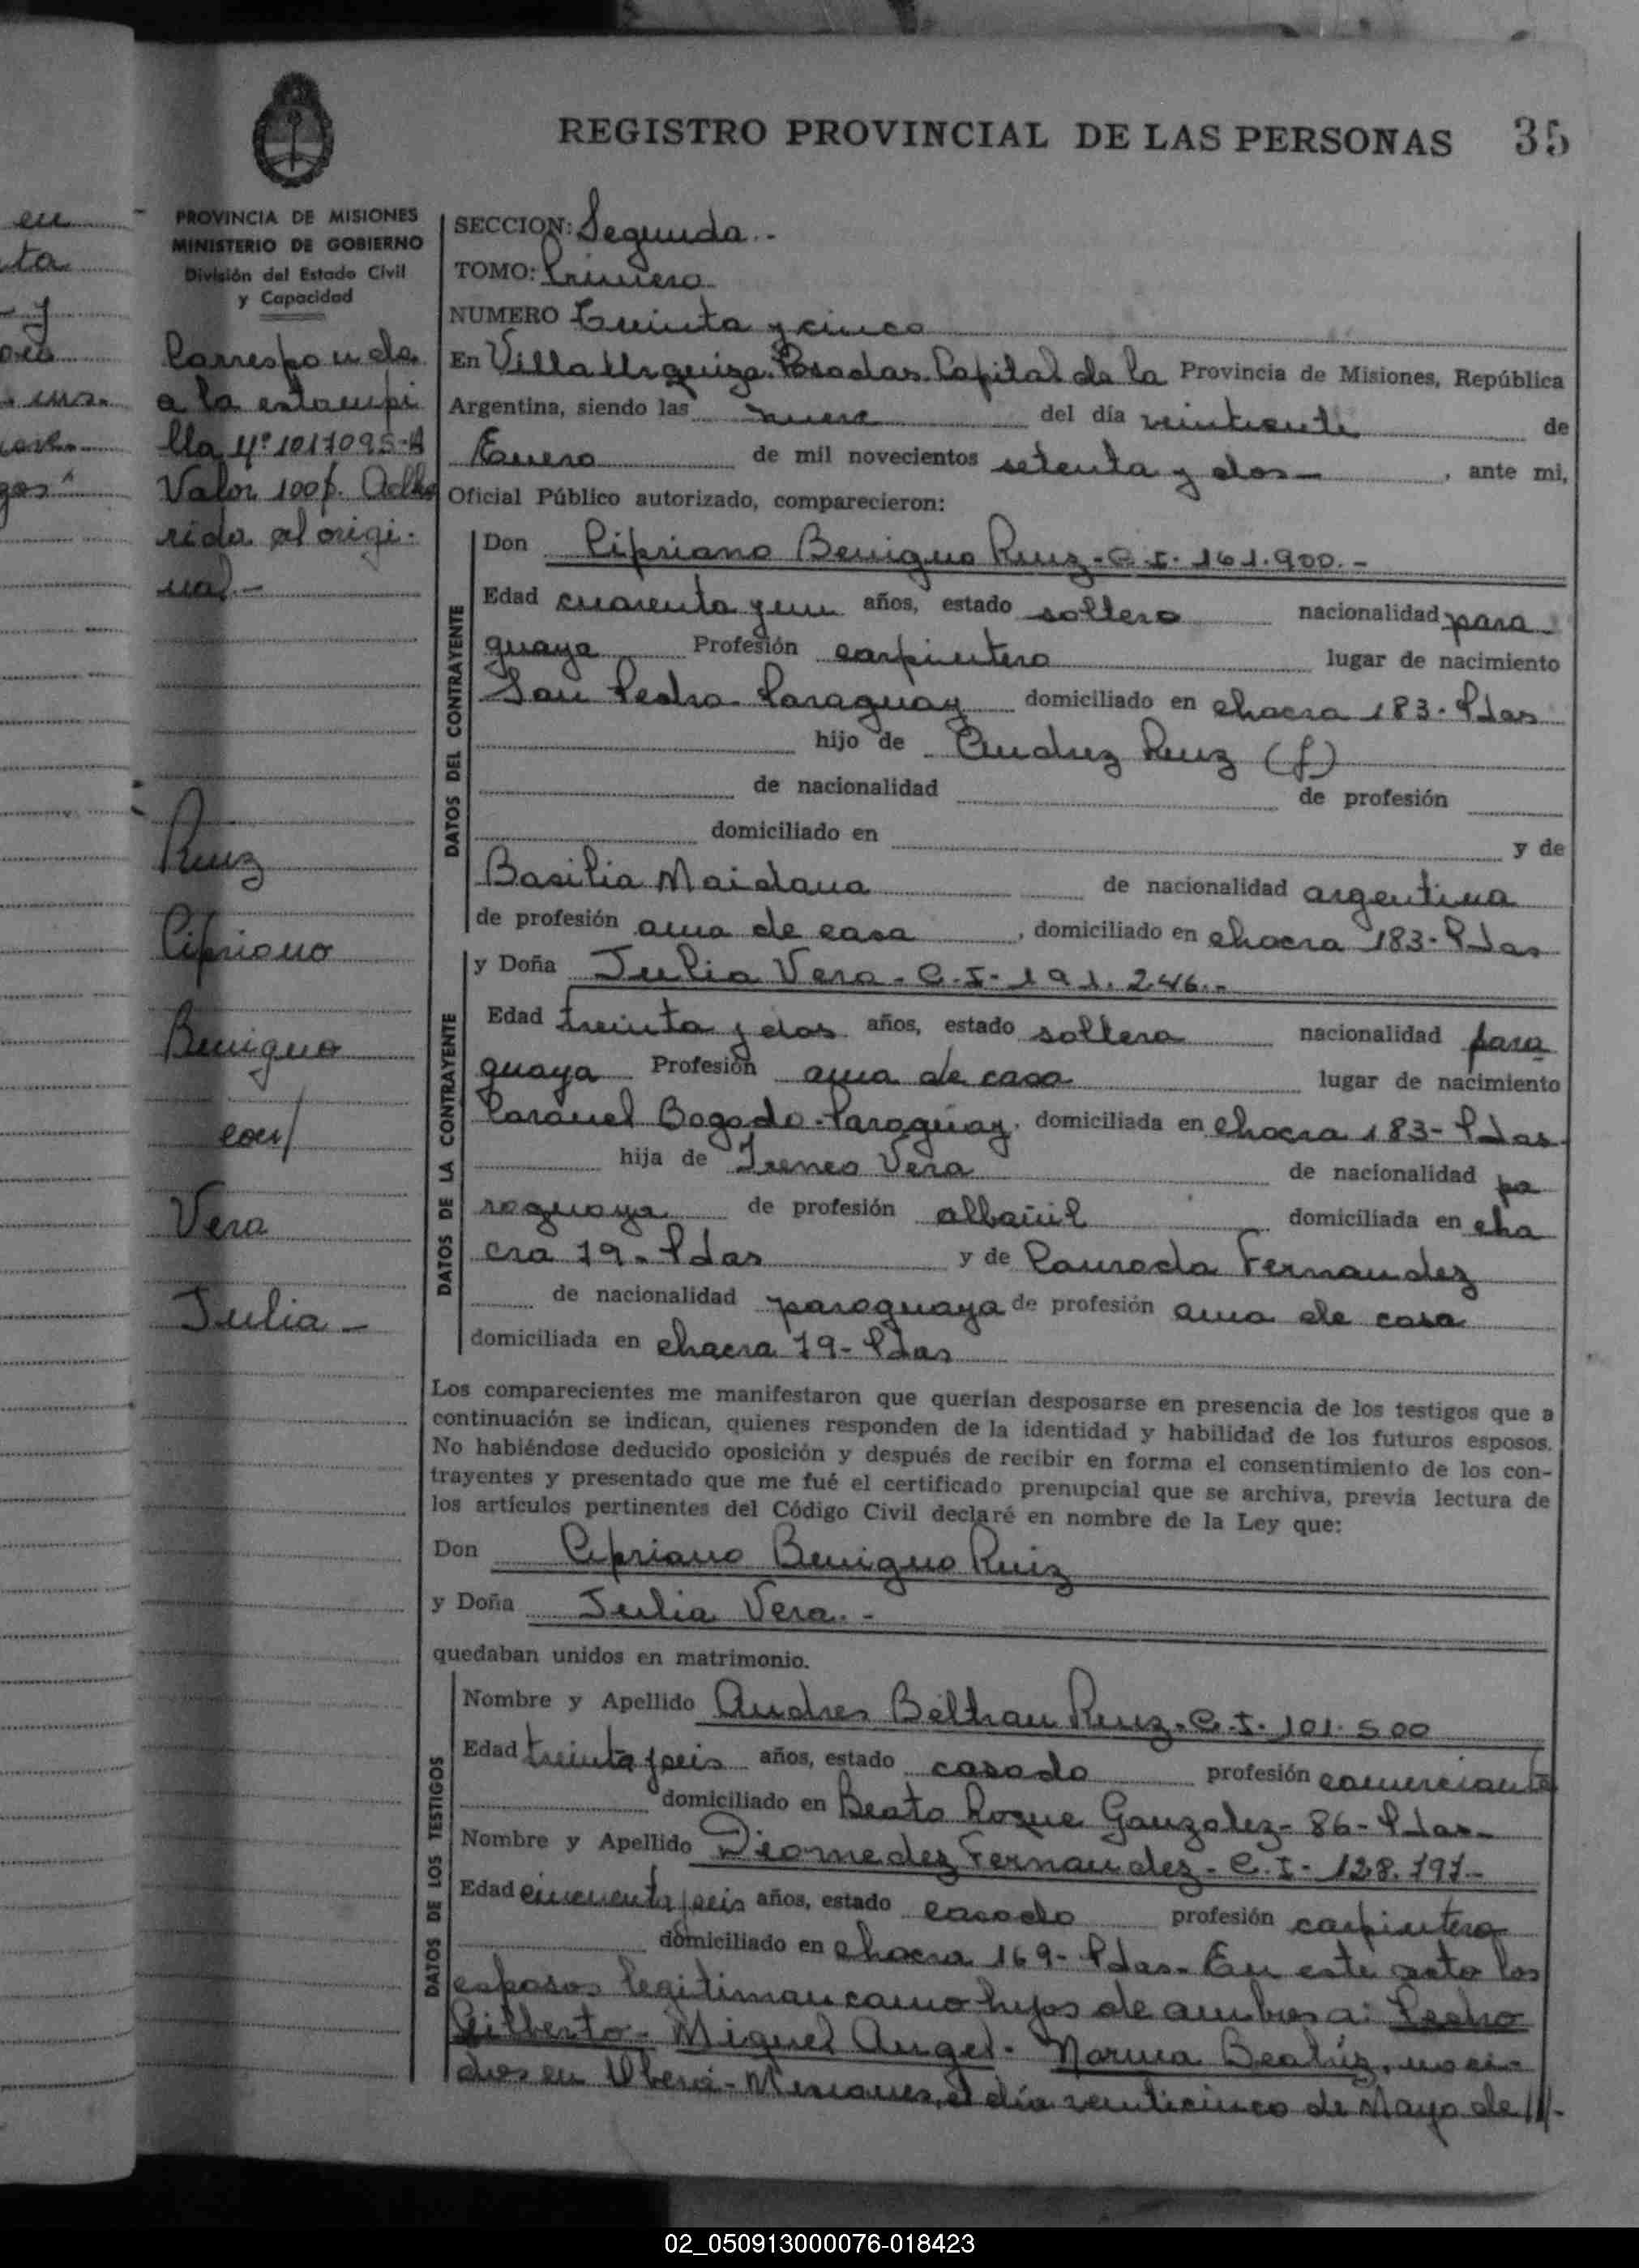 REGISTRO PROVINCIAL DE LAS PERSONAS 35
PROVINCIA DE MISIONES
MINISTERIO DE GOBIERNO
División del Estado Civil
y Capacidad
Corresponde
a la estampi
lla Nº 1017095-A
Valor 100$. Adhe
rida al origi-
nal.-
Ruiz
Cipriano
Benigno
con/
Vera
Julia -
SECCION: Segunda.-
TOMO: Primero
NUMERO Treinta y cinco
En Villa Urquiza. Posadas. Capital de la Provincia de Misiones, República
Argentina, siendo las nueve del día veintisiete de
Enero de mil novecientos setenta y dos - , ante mi,
Oficial Público autorizado, comparecieron:
DATOS DEL CONTRAYENTE
Don Cipriano Benigno Ruiz - C.I. 161.900.-
Edad cuarenta y un años, estado soltero nacionalidad para
guaya Profesión carpintero lugar de nacimiento
San Pedro. Paraguay domiciliado en chacra 183. Pdas
hijo de Andrez Ruiz (f)
de nacionalidad de profesión
domiciliado en y de
Basilia Maidana de nacionalidad argentina
de profesión ama de casa , domiciliado en chacra 183. Pdas
DATOS DE LA CONTRAYENTE
y Doña Julia Vera - C.I. 191.246.-
Edad treinta y dos años, estado soltera nacionalidad para
guaya Profesión ama de casa lugar de nacimiento
Coronel Bogado. Paraguay. domiciliada en chacra 183- Pdas.
hija de Ireneo Vera de nacionalidad pa
raguaya de profesión albañil domiciliada en cha
cra 79- Pdas y de Fernandez
de nacionalidad paraguaya de profesión ama de casa
domiciliada en chacra 79- Pdas
Los comparecientes me manifestaron que querían desposarse en presencia de los testigos que a
continuación se indican, quienes responden de la identidad y habilidad de los futuros esposos.
No habiéndose deducido oposición y después de recibir en forma el consentimiento de los con-
trayentes y presentado que me fué el certificado prenupcial que se archiva, previa lectura de
los artículos pertinentes del Código Civil declaré en nombre de la Ley que:
Don Cipriano Benigno Ruiz
y Doña Julia Vera.-
quedaban unidos en matrimonio.
DATOS DE LOS TESTIGOS
Nombre y Apellido Andres Beltran Ruiz - C.I. 101.500
Edad treinta y seis años, estado casado profesión comerciante
domiciliado en Beato Roque Gonzalez- 86- Pdas-
Nombre y Apellido Diomedez Fernandez - C.I. 128.797.-
Edad cincuenta y seis años, estado casado profesión carpintero
domiciliado en chacra 169- Pdas- En este acto los
esposos legitiman como hijos de ambos a: Pedro
Gilberto- Miguel Angel- Norma Beatriz, naci-
dos en Oberá- Misiones, el día veinticinco de Mayo de //-
02_050913000076-018423